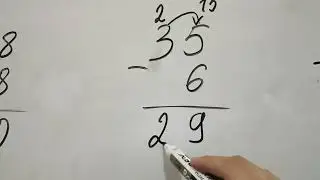 2 15
35
- 6
29
8
8